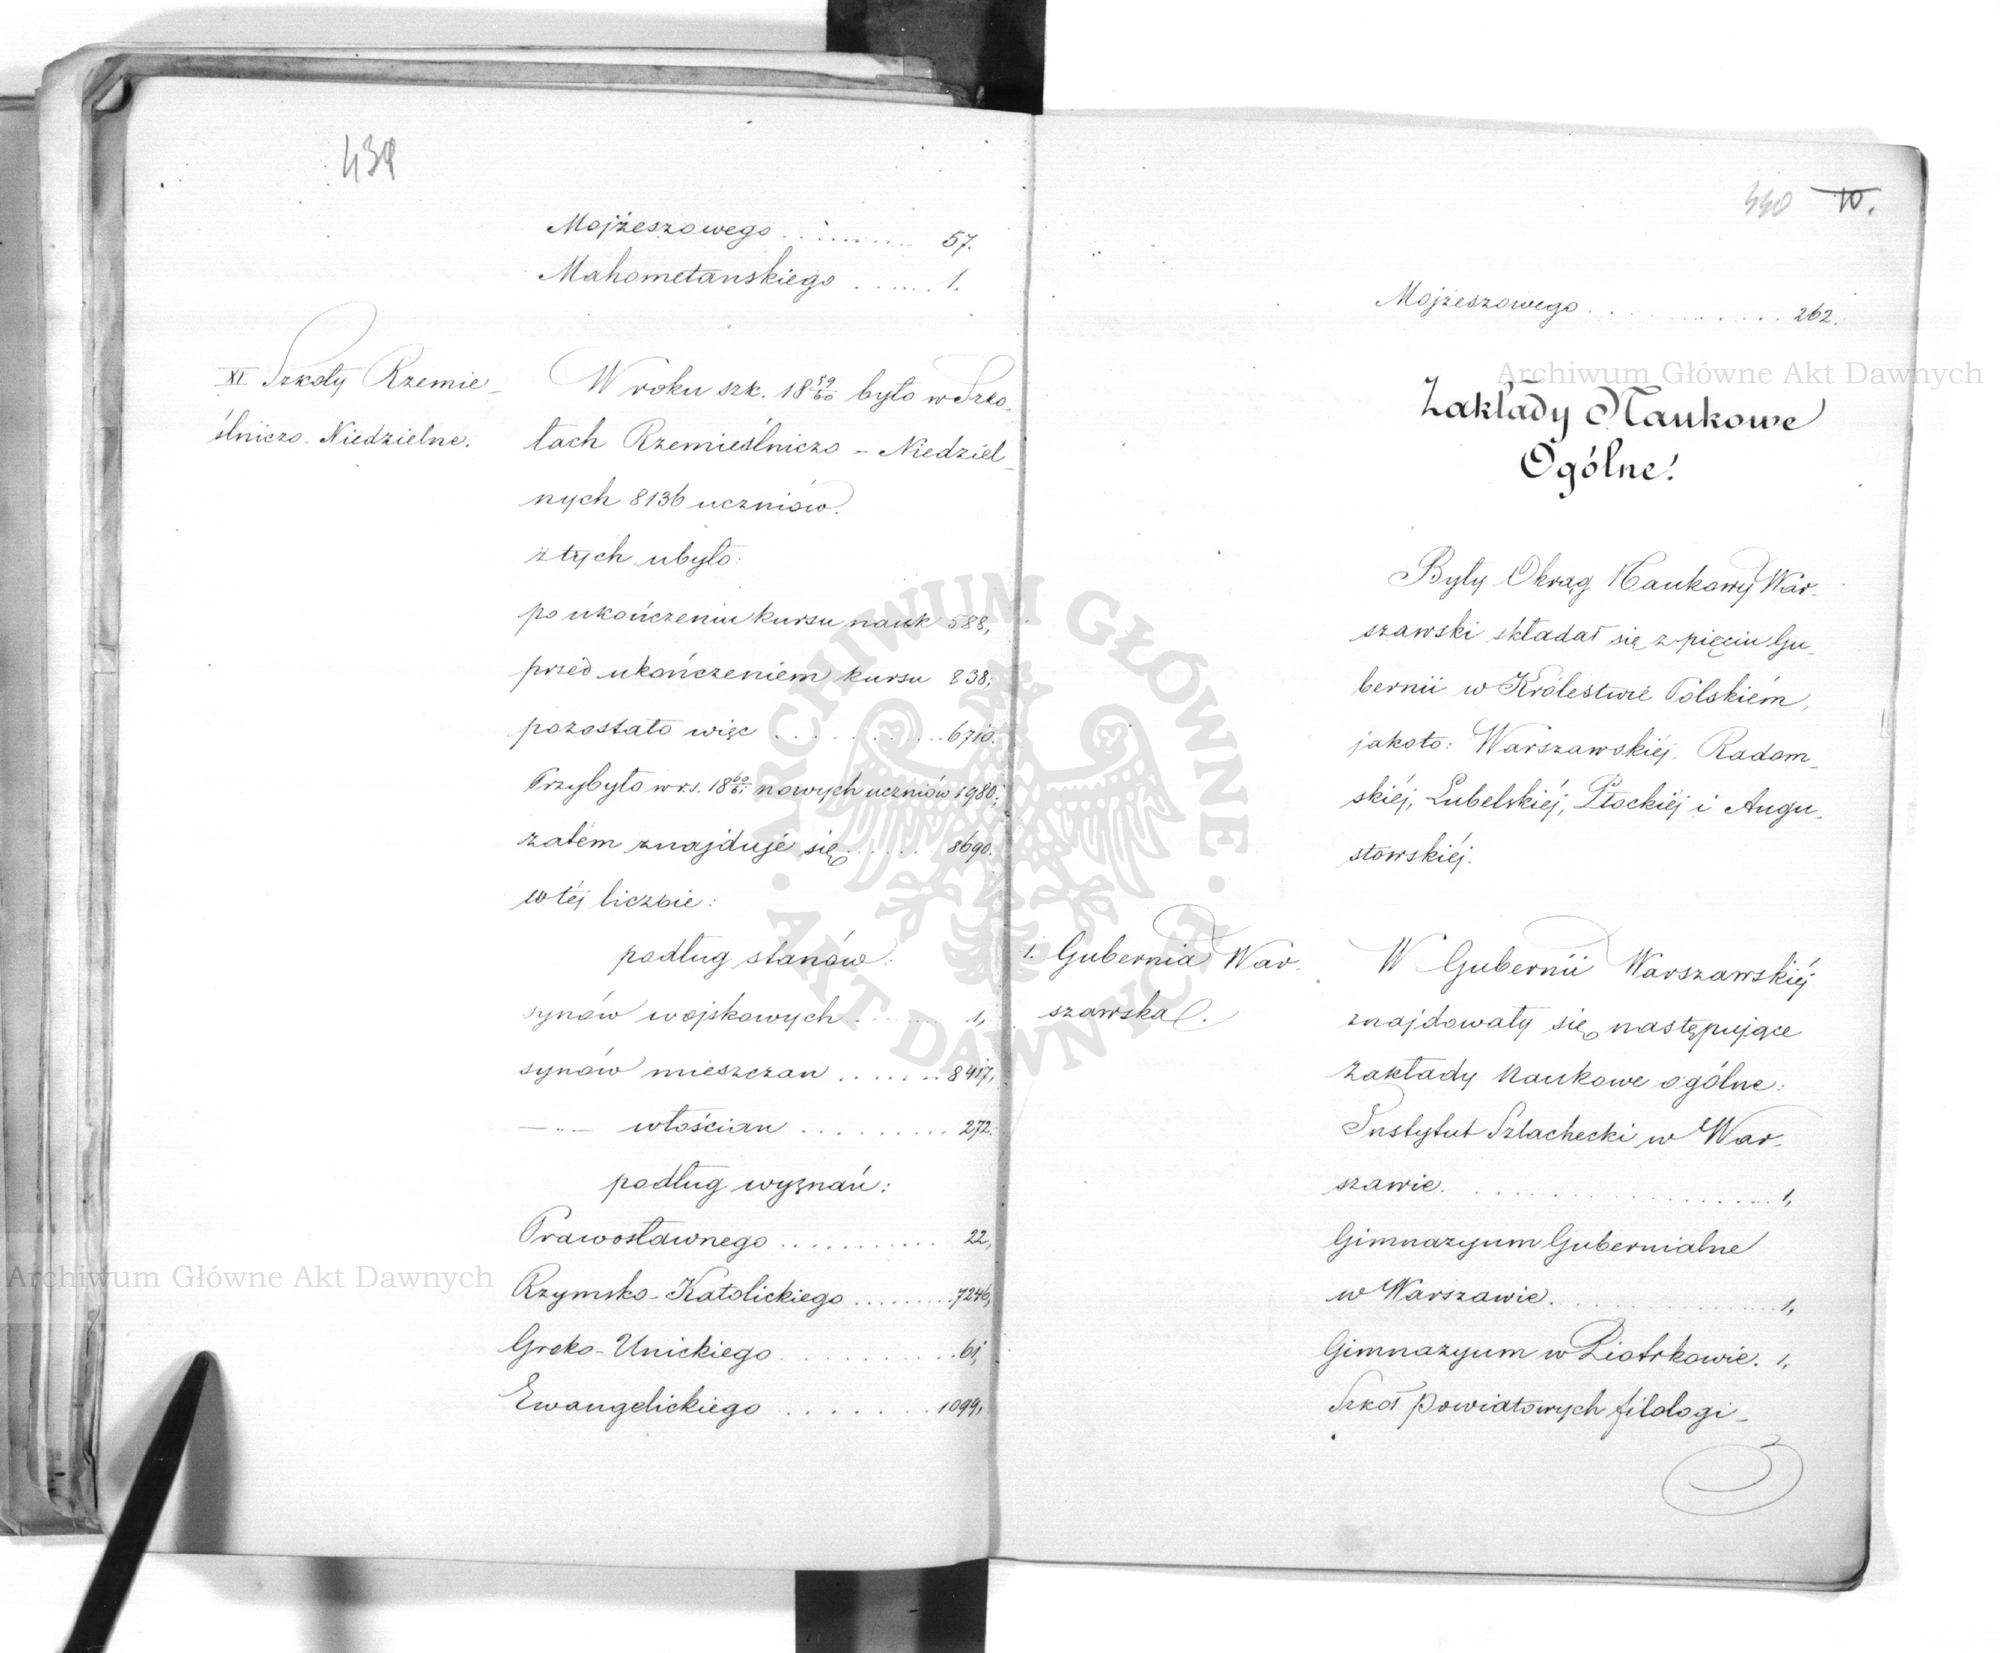 439
Mojżeszowego ........... 57.
Mahometanskiego ...... 1.
XI Szkoły Rzemie-
ślniczo-Niedzielne.
W roku szk. 18 59/60 było w Szko-
łach Rzemieślniczo - Niedziel-
nych 8136 uczniów.
z tych ubyło:
po ukończeniu kursu nauk 588,
przed ukończeniem kursu 838;
pozostało więc .......... 6710.
Przybyło w r.s. 18 60/61 nowych uczniów 1980;
zatém znajduje się ...... 8690.
w téj liczbie:
podług stanów:
synów wojskowych ........ 1,
synów mieszczan ....... 8417,
—„— włościan ......... 272.
podług wyznań:
Prawosławnego ........... 22,
Rzymsko-Katolickiego ......... 7246,
Greko-Unickiego .......... 61,
Ewangelickiego ........ 1099,
440 10.
Mojżeszowego ............ 262.
Zakłady Naukowe
Ogólne.
Były Okrąg Naukowy War-
szawski składał się z pięciu Gu-
bernii w Królestwie Polskiém,
jakoto: Warszawskiéj, Radom-
skiéj, Lubelskiéj, Płockiéj i Augu-
stowskiéj.
1. Gubernia War-
szawska.
W Gubernii Warszawskiéj
znajdowały się następujące
zakłady naukowe ogólne:
Instytut Szlachecki w War-
szawie. .................. 1,
Gimnazyum Gubernialne
w Warszawie. ............... 1,
Gimnazyum w Piotrkowie. 1,
Szkoł powiatowych filologi-
Archiwum Główne Akt Dawnych
Archiwum Główne Akt Dawnych
ARCHIWUM GŁÓWNE · AKT DAWNYCH ·